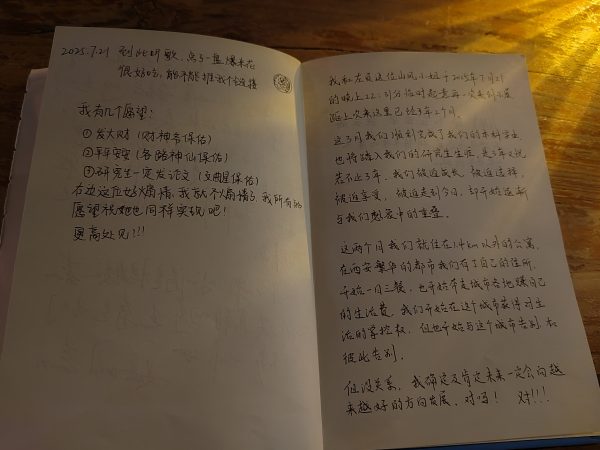 2025.7.21 到此听歌、点了一盘爆米花
很好吃,能不能推我个链接
我有几个愿望:
①发大财(财神爷保佑)
②平平安安(各路神仙保佑)
③研究生一定发论文(文曲星保佑)
右边这位好煽情,我就不煽情了,我所有的
愿望祝她也同样实现吧!
更高处见!!!
我和左页这位山风小姐于2025年7月21
的晚上22:31分临时起意再一次来到小酒
距上次来这里已经3年2个月。
这3月我们顺利完成了我们的本科学业
也将踏入我们的研究生生涯,是3年又说
若不止3年,我们被迫成长,被迫选择,
被迫享受,被迫走到今日,却开始逐渐
与我们想象中的重叠。
这两个月我们就住在1.4km以外的公寓,
在西安繁华的都市我们有了自己的住所,
开始一日三餐,也开始奔走城市各地赚自己
的生活费,我们开始在这个城市获得对生
活的掌控权,但也开始与这个城市告别,和
彼此告别。
但没关系,我确定及肯定未来一定会向越
来越好的方向发展,对吗! 对!!!